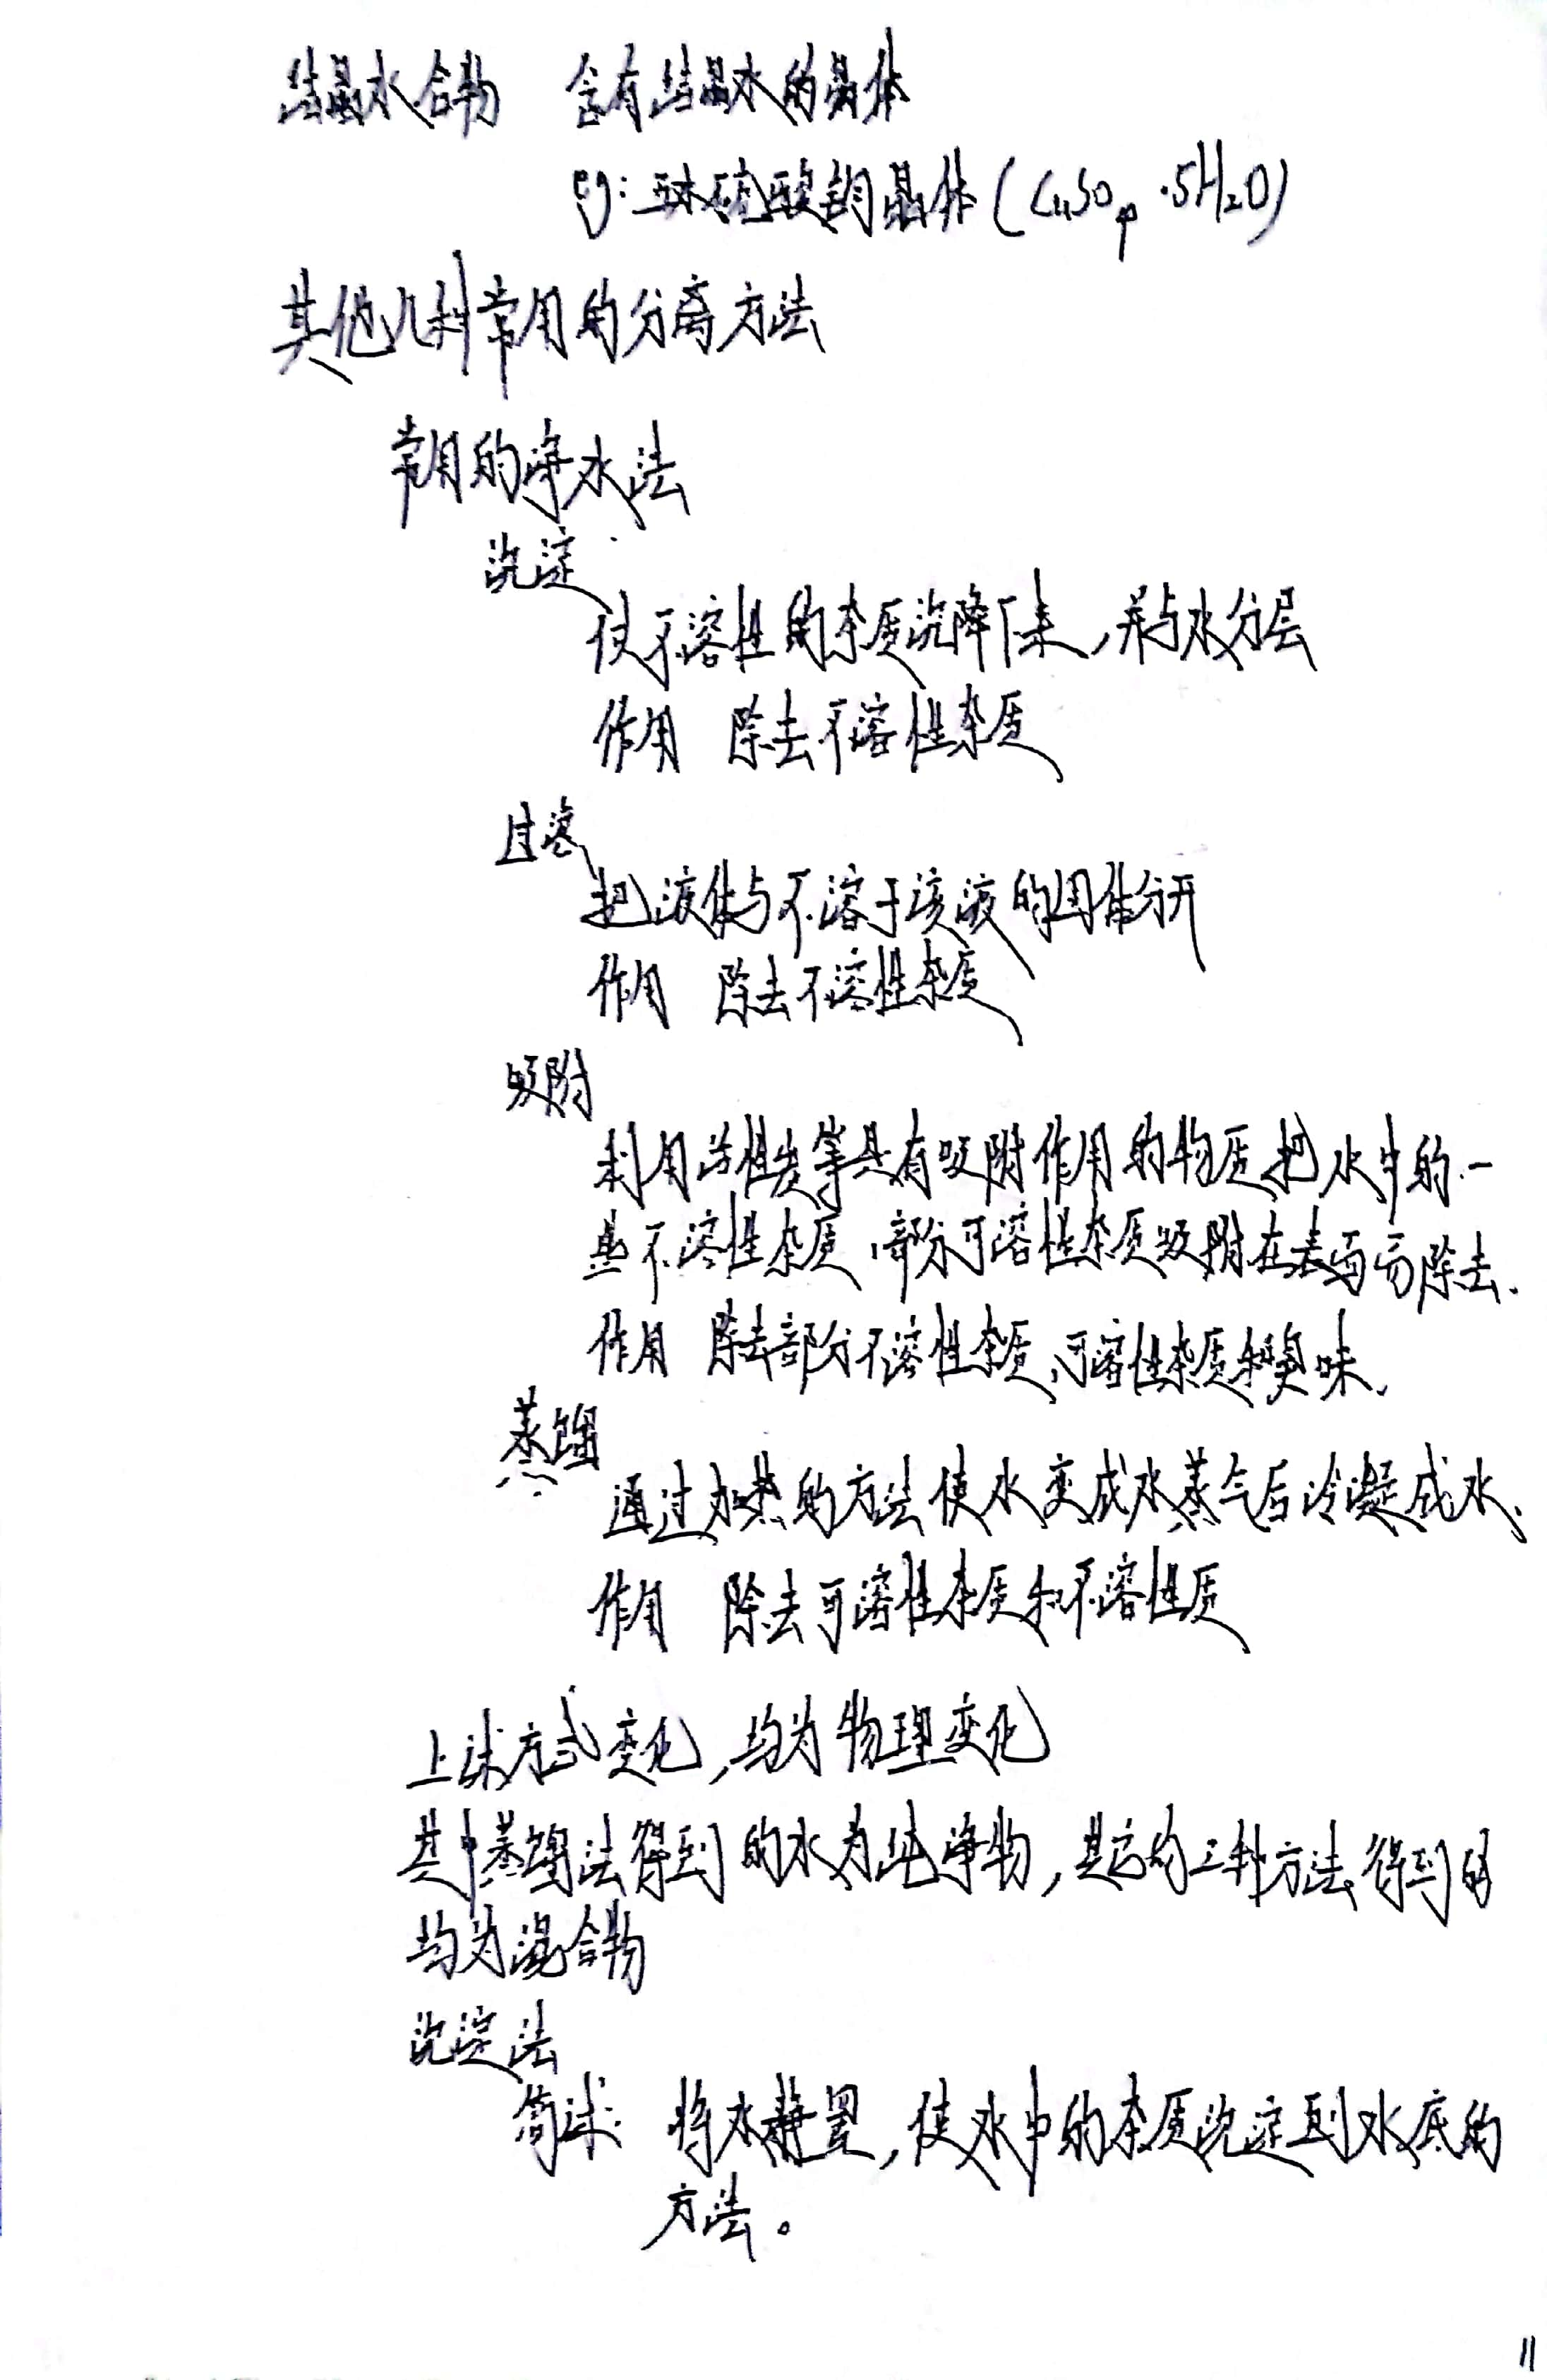 结晶水合物 含有结晶水的晶体
eg:五水硫酸铜晶体(CuSO₄·5H₂O)
其他几种常用的分离方法
常用的净水法
沉淀
使不溶性的杂质沉降下来,并与水分层
作用 除去不溶性杂质
过滤
把液体与不溶于该液的固体分开
作用 除去不溶性杂质
吸附
利用活性炭等具有吸附作用的物质把水中的一
些不溶性杂质、部分可溶性杂质吸附在表面而除去.
作用 除去部分不溶性杂质、可溶性杂质和臭味.
蒸馏
通过加热的方法使水变成水蒸气后冷凝成水.
作用 除去可溶性杂质和不溶性质
上述方式变化,均为物理变化
其中蒸馏法得到的水为纯净物,其它的三种方法得到的
均为混合物
沉淀法
简述: 将水静置,使水中的杂质沉淀到水底的
方法。
11